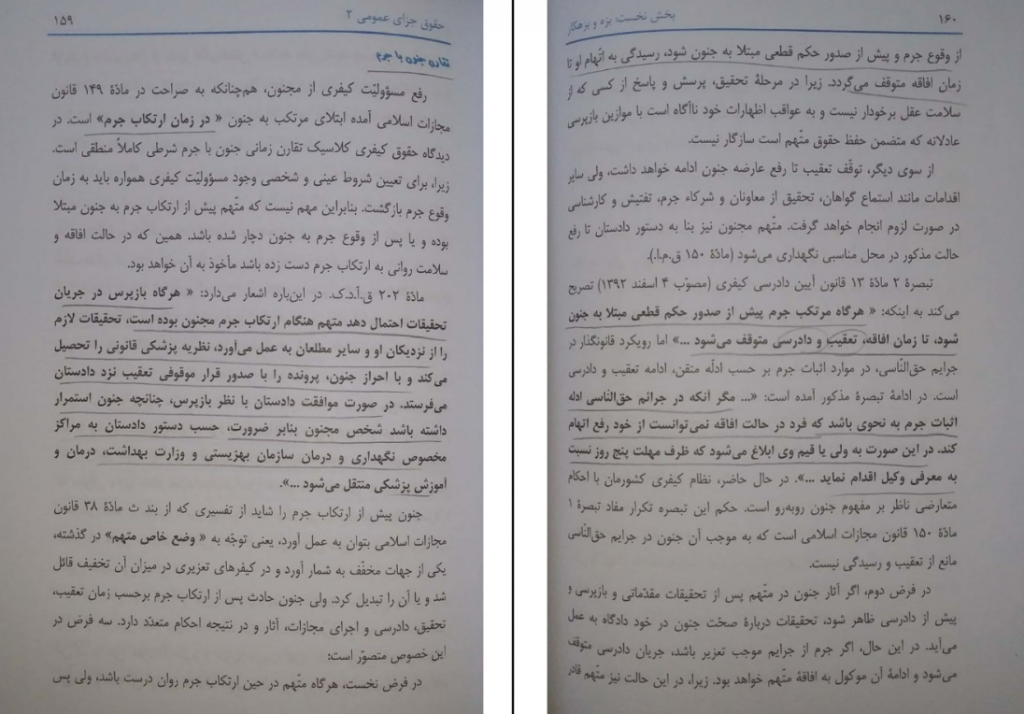 حقوق جزای عمومی ۲ ۱۵۹
تقارن جنون با جرم
رفع مسؤولیّت کیفری از مجنون، هم‌چنانکه به صراحت در مادّهٔ ۱۴۹ قانون
مجازات اسلامی آمده ابتلای مرتکب به جنون « در زمان ارتکاب جرم» است. در
دیدگاه حقوق کیفری کلاسیک تقارن زمانی جنون با جرم شرطی کاملاً منطقی است.
زیرا، برای تعیین شروط عینی و شخصی وجود مسؤولیّت کیفری همواره باید به زمان
وقوع جرم بازگشت. بنابراین مهم نیست که متّهم پیش از ارتکاب جرم به جنون مبتلا
بوده و یا پس از وقوع جرم به جنون دچار شده باشد. همین که در حالت افاقه و
سلامت روانی به ارتکاب جرم دست زده باشد مأخوذ به آن خواهد بود.
مادّهٔ ۲۰۲ ق.آ.د.ک. در این‌باره اشعار می‌دارد: « هرگاه بازپرس در جریان
تحقیقات احتمال دهد متهم هنگام ارتکاب جرم مجنون بوده است، تحقیقات لازم
را از نزدیکان او و سایر مطلعان به عمل می‌آورد، نظریه پزشکی قانونی را تحصیل
می‌کند و با احراز جنون، پرونده را با صدور قرار موقوفی تعقیب نزد دادستان
می‌فرستد. در صورت موافقت دادستان با نظر بازپرس، چنانچه جنون استمرار
داشته باشد شخص مجنون بنابر ضرورت، حسب دستور دادستان به مراکز
مخصوص نگهداری و درمان سازمان بهزیستی و وزارت بهداشت، درمان و
آموزش پزشکی منتقل می‌شود ...».
جنون پیش از ارتکاب جرم را شاید از تفسیری که از بند ث مادّهٔ ۳۸ قانون
مجازات اسلامی بتوان به عمل آورد، یعنی توجّه به « وضع خاص متهم» در گذشته،
یکی از جهات مخفّف به شمار آورد و در کیفرهای تعزیری در میزان آن تخفیف قائل
شد و یا آن را تبدیل کرد. ولی جنون حادث پس از ارتکاب جرم برحسب زمان تعقیب،
تحقیق، دادرسی و اجرای مجازات، آثار و در نتیجه احکام متعدّد دارد. سه فرض در
این خصوص متصوّر است:
در فرض نخست، هرگاه متّهم در حین ارتکاب جرم روان درست باشد، ولی پس
۱۶۰ بخش نخست: بزه و بزهکار
از وقوع جرم و پیش از صدور حکم قطعی مبتلا به جنون شود، رسیدگی به اتّهام او تا
زمان افاقه متوقف می‌گردد. زیرا در مرحلهٔ تحقیق، پرسش و پاسخ از کسی که از
سلامت عقل برخودار نیست و به عواقب اظهارات خود ناآگاه است با موازین بازپرسی
عادلانه که متضمن حفظ حقوق متّهم است سازگار نیست.
از سوی دیگر، توقّف تعقیب تا رفع عارضه جنون ادامه خواهد داشت، ولی سایر
اقدامات مانند استماع گواهان، تحقیق از معاونان و شرکاء جرم، تفتیش و کارشناسی
در صورت لزوم انجام خواهد گرفت. متّهم مجنون نیز بنا به دستور دادستان تا رفع
حالت مذکور در محل مناسبی نگهداری می‌شود (مادّهٔ ۱۵۰ ق.م.ا.).
تبصرهٔ ۲ مادّهٔ ۱۳ قانون آیین دادرسی کیفری (مصوّب ۴ اسفند ۱۳۹۲) تصریح
می‌کند به اینکه: « هرگاه مرتکب جرم پیش از صدور حکم قطعی مبتلا به جنون
شود، تا زمان افاقه، تعقیب و دادرسی متوقف می‌شود ...» اما رویکرد قانونگذار در
جرایم حق‌النّاسی، در موارد اثبات جرم بر حسب ادلّه متقن، ادامه تعقیب و دادرسی
است. در ادامهٔ تبصرهٔ مذکور آمده است: «... مگر آنکه در جرائم حق‌الناسی ادله
اثبات جرم به نحوی باشد که فرد در حالت افاقه نمی‌توانست از خود رفع اتهام
کند. در این صورت به ولی یا قیم وی ابلاغ می‌شود که ظرف مهلت پنج روز نسبت
به معرفی وکیل اقدام نماید ...». در حال حاضر، نظام کیفری کشورمان با احکام
متعارضی ناظر بر مفهوم جنون روبه‌رو است. حکم این تبصره تکرار مفاد تبصرهٔ ۱
مادّهٔ ۱۵۰ قانون مجازات اسلامی است که به موجب آن جنون در جرایم حق‌النّاسی
مانع از تعقیب و رسیدگی نیست.
در فرض دوم، اگر آثار جنون در متّهم پس از تحقیقات مقدّماتی و بازپرسی و
پیش از دادرسی ظاهر شود، تحقیقات دربارهٔ صحّت جنون در خود دادگاه به عمل
می‌آید. در این حال، اگر جرم از جرایم موجب تعزیر باشد، جریان دادرسی متوقف
می‌شود و ادامهٔ آن موکول به افاقهٔ متّهم خواهد بود. زیرا، در این حالت نیز متّهم قادر